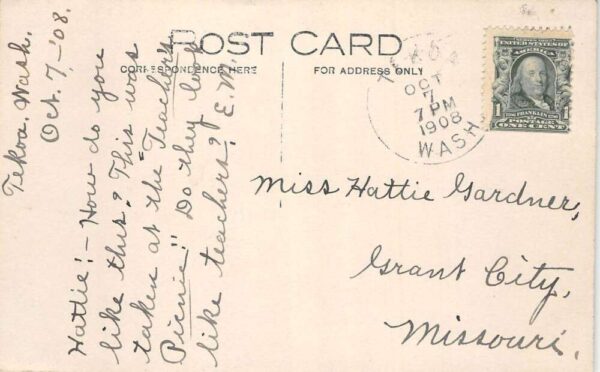 POST CARD
CORRESPONDENCE HERE
FOR ADDRESS ONLY
Tekoa, Wash.
Oct. 7, '08.
Hattie! - How do you
like this? This was
taken at the "Teacher's
Picnic". Do they look
like teachers? E.W.
TEKOA
OCT
7
7 PM
1908
WASH.
UNITED STATES OF AMERICA
FRANKLIN
1 1
POSTAGE
ONE CENT
Miss Hattie Gardner,
Grant City,
Missouri.